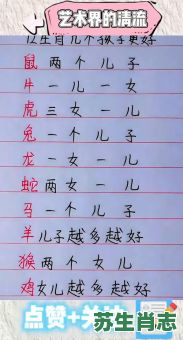 艺术界的清流
12生肖几个孩子更好
鼠 两 个 儿 子
牛 一 儿 一 女
虎 三 女 一 儿
兔 一 个 儿 子
龙 一 女 一 儿
蛇 两 女 一 儿
马 一 个 儿 子
羊 儿子越多越好
猴 两 个 女 儿
鸡 女儿越多越好
点赞+关注
苏生肖志